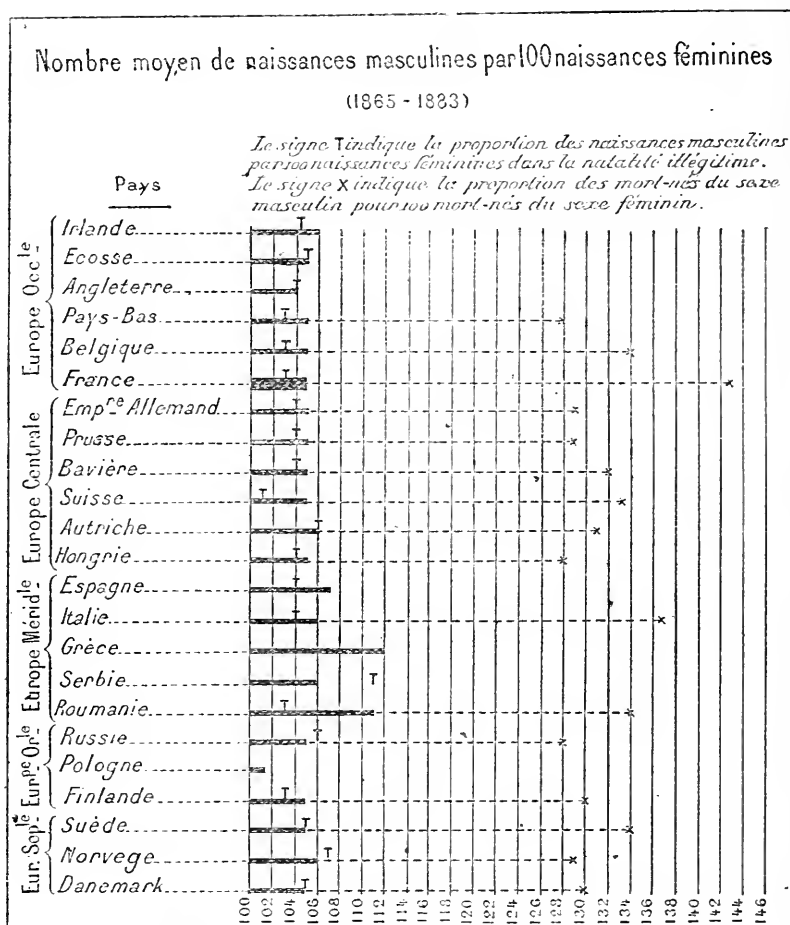 Nombre moyen de naissances masculines par 100 naissances féminines
(1865 - 1883)
Le signe T indique la proportion des naissances masculines
par 100 naissances féminines dans la natalité illégitime.
Le signe X indique la proportion des mort-nés du sexe
masculin pour 100 mort-nés du sexe féminin.
Pays
Europe Occle
Irlande
Ecosse
Angleterre
Pays-Bas
Belgique
France
Europe Centrale
Empre Allemand
Prusse
Bavière
Suisse
Autriche
Hongrie
Europe Méridle
Espagne
Italie
Grèce
Serbie
Roumanie
Eurpe Orle
Russie
Pologne
Finlande
Eur. Sople
Suède
Norvege
Danemark
100 102 104 106 108 110 112 114 116 118 120 122 124 126 128 130 132 134 136 138 140 142 144 146